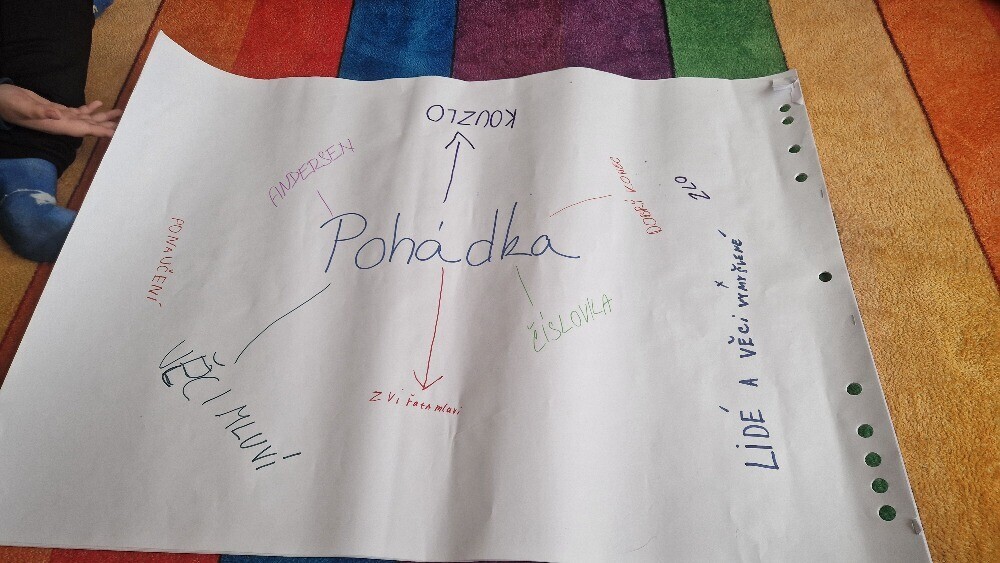 KOUZLO
ANDERSEN
DOBRÝ KONEC
ZLO
Pohádka
PONAUČENÍ
ČÍSLOVKA
VĚCI MLUVÍ
Zvířata mluví
LIDÉ A VĚCI VYMYŠLENÉ